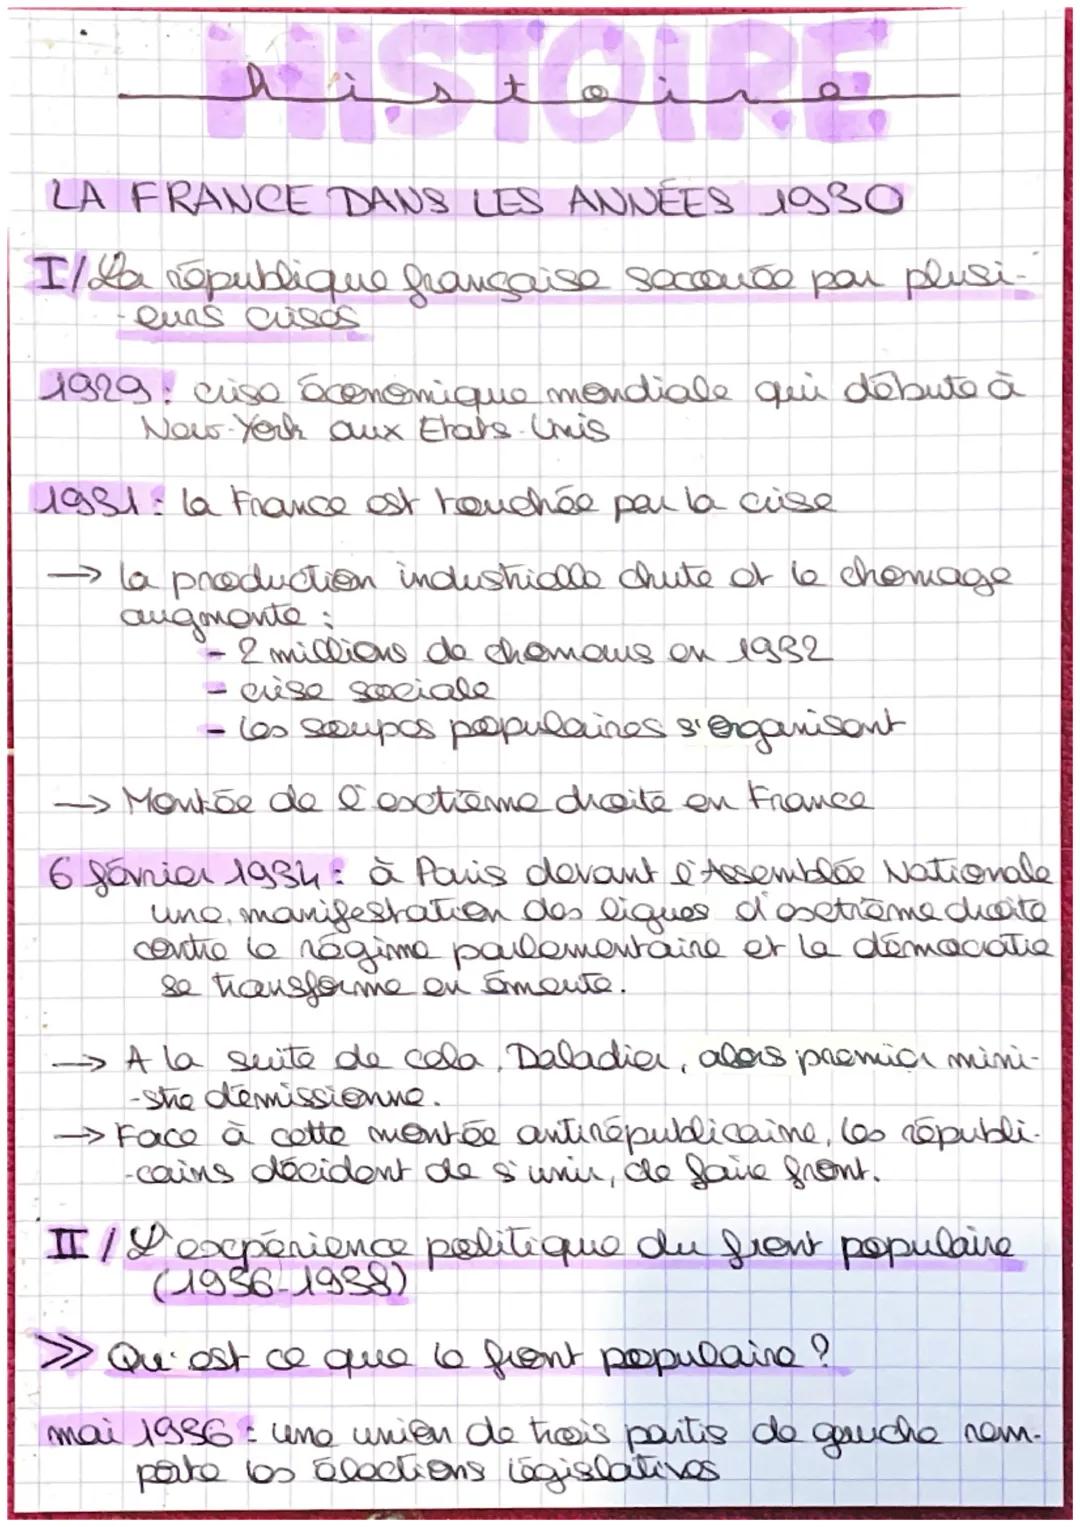 HISTOIRE
histoire
LA FRANCE DANS LES ANNÉES 1930
I/ La république française secouée par plusi-
-eurs crises
1929 : crise économique mondiale qui débute à
New-York aux Etats-Unis
1931 : la France est touchée par la crise
→ la production industrielle chute et le chomage
augmente :
- 2 millions de chomeurs en 1932
- crise sociale
- les soupes populaires s'organisent
→ Montée de l'extrême droite en France
6 février 1934 : à Paris devant l'Assemblée Nationale
une manifestation des ligues d'extrême droite
contre le régime parlementaire et la démocratie
se transforme en émeute.
→ A la suite de cela, Daladier, alors premier mini-
-stre démissionne.
→ Face à cette montée antirépublicaine, les républi-
-cains décident de s'unir, de faire front.
II / L'expérience politique du front populaire
(1936-1938)
>> Qu'est ce que le front populaire ?
mai 1936 : une union de trois partis de gauche rem-
porte les élections législatives